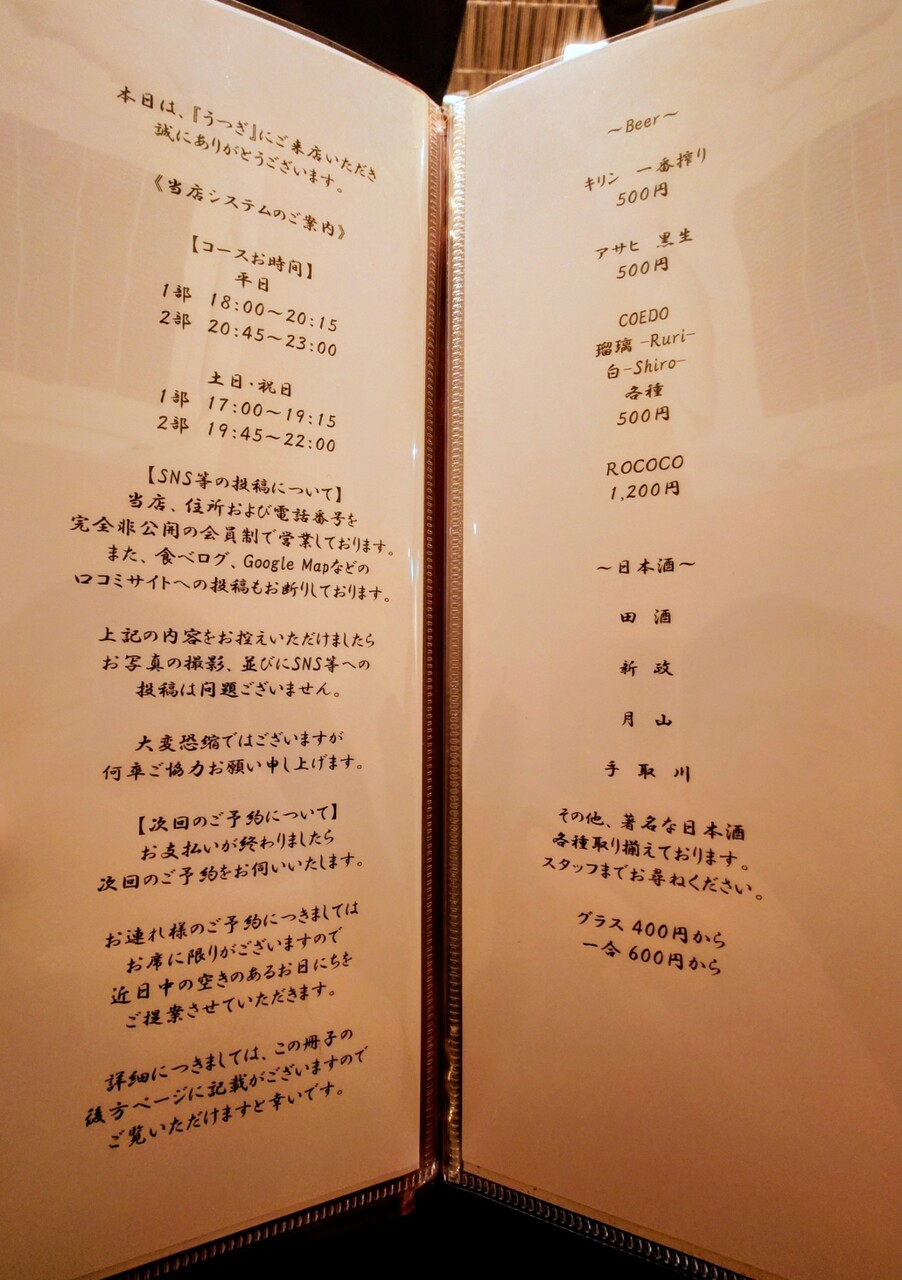 本日は、『うつぎ』にご来店いただき
誠にありがとうございます。
《当店システムのご案内》
【コースお時間】
平日
1部 18:00～20:15
2部 20:45～23:00
土日・祝日
1部 17:00～19:15
2部 19:45～22:00
【SNS等の投稿について】
当店、住所および電話番号を
完全非公開の会員制で営業しております。
また、食べログ、Google Mapなどの
口コミサイトへの投稿もお断りしております。
上記の内容をお控えいただけましたら
お写真の撮影、並びにSNS等への
投稿は問題ございません。
大変恐縮ではございますが
何卒ご協力お願い申し上げます。
【次回のご予約について】
お支払いが終わりましたら
次回のご予約をお伺いいたします。
お連れ様のご予約につきましては
お席に限りがございますので
近日中の空きのあるお日にちを
ご提案させていただきます。
詳細につきましては、この冊子の
後方ページに記載がございますので
ご覧いただけますと幸いです。
～Beer～
キリン 一番搾り
500円
アサヒ 黒生
500円
COEDO
瑠璃 -Ruri-
白-Shiro-
各種
500円
ROCOCO
1,200円
～日本酒～
田 酒
新 政
月 山
手 取 川
その他、著名な日本酒
各種取り揃えております。
スタッフまでお尋ねください。
グラス 400円から
一合 600円から